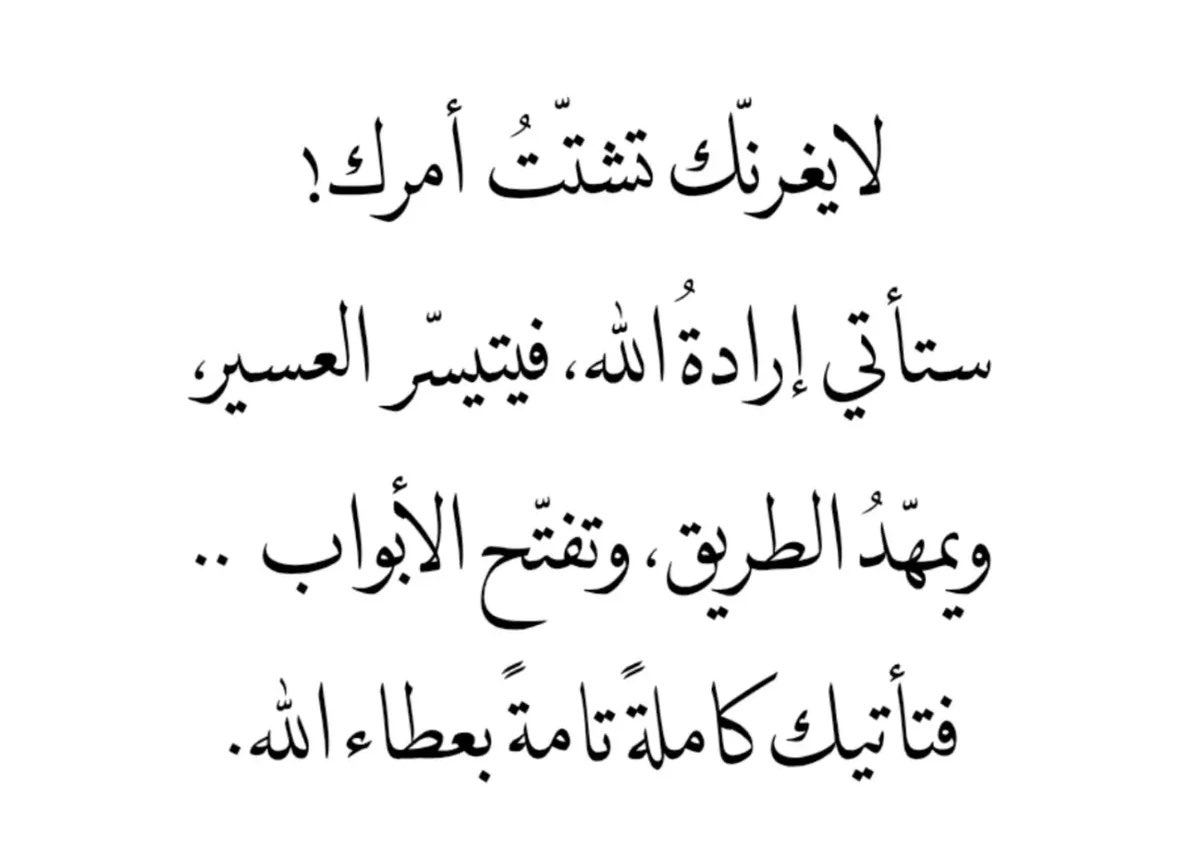 لايغرنّك تشتّتُ أمرك!
ستأتي إرادةُ الله، فيتيسّر العسير،
ويمهّدُ الطريق، وتفتّح الأبواب ..
فتأتيك كاملةً تامةً بعطاء الله.